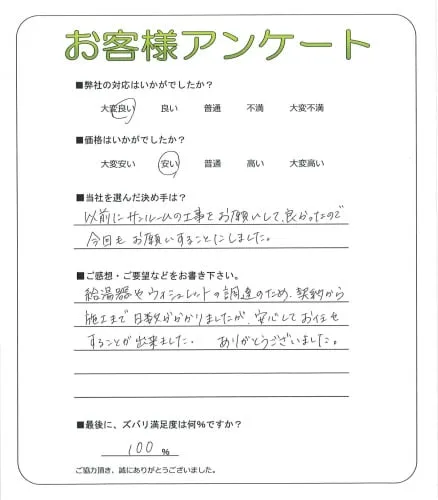 お客様アンケート
■弊社の対応はいかがでしたか？
大変良い 良い 普通 不満 大変不満
■価格はいかがでしたか？
大変安い 安い 普通 高い 大変高い
■当社を選んだ決め手は？
以前にサンルームの工事をお願いして、良かったので
今回もお願いすることにしました。
■ご感想・ご要望などをお書き下さい。
給湯器やウォシュレットの調達のため、契約から
施工まで日数がかかりましたが、安心してお任せ
することが出来ました。 ありがとうございました。
■最後に、ズバリ満足度は何%ですか？
100 %
ご協力頂き、誠にありがとうございました。